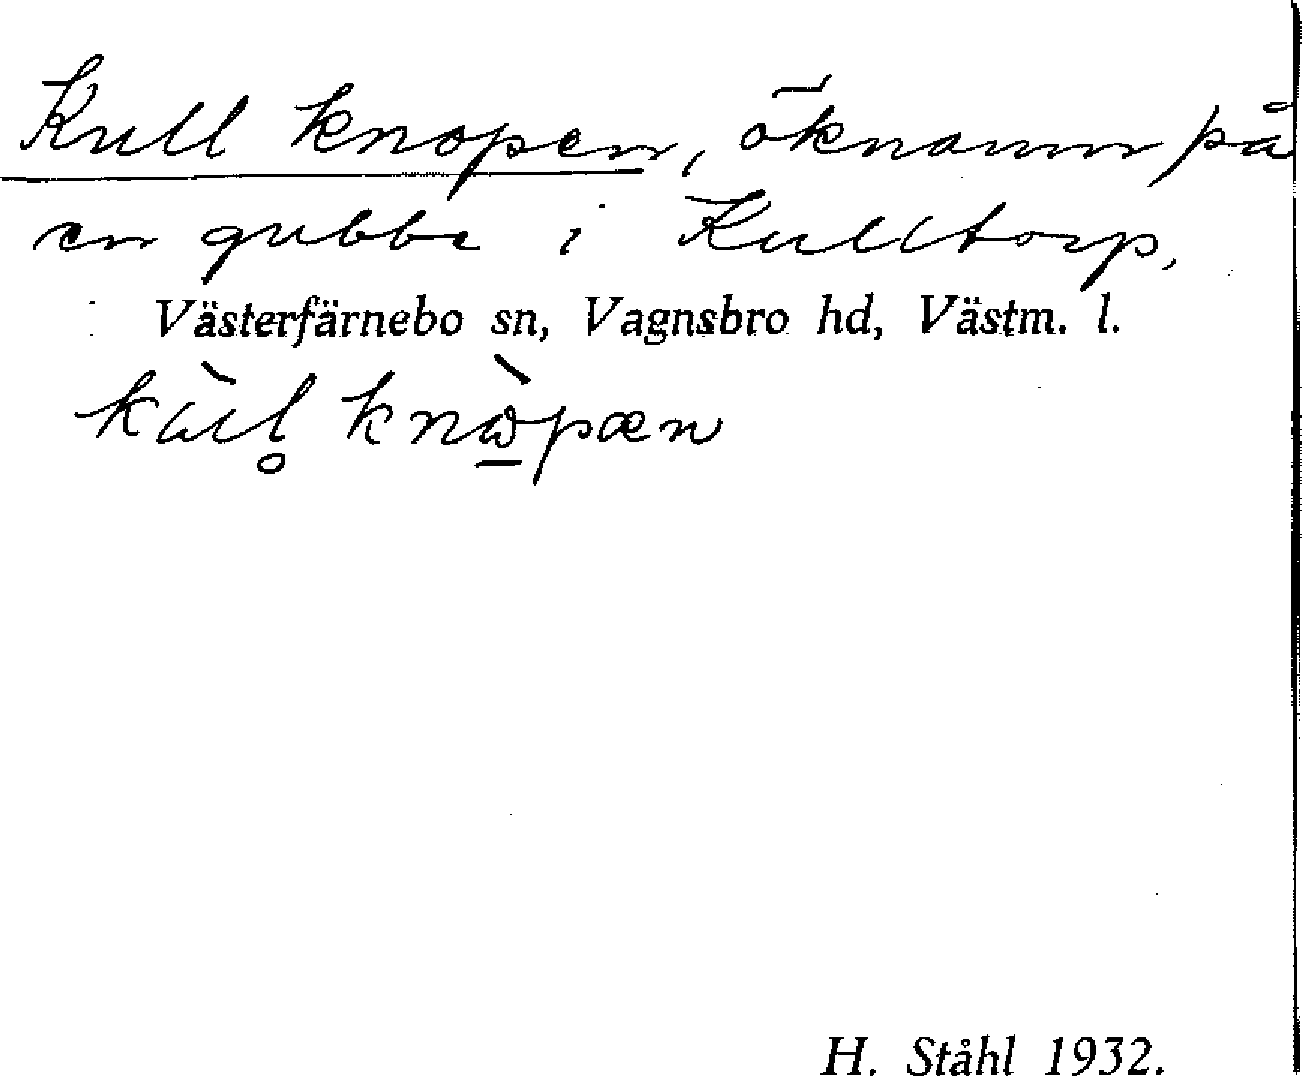 Kull knopen, öknamn på
en gubbe i Kulltorp,
Västerfärnebo sn, Vagnsbro hd, Västm. l.
H. Ståhl 1932.